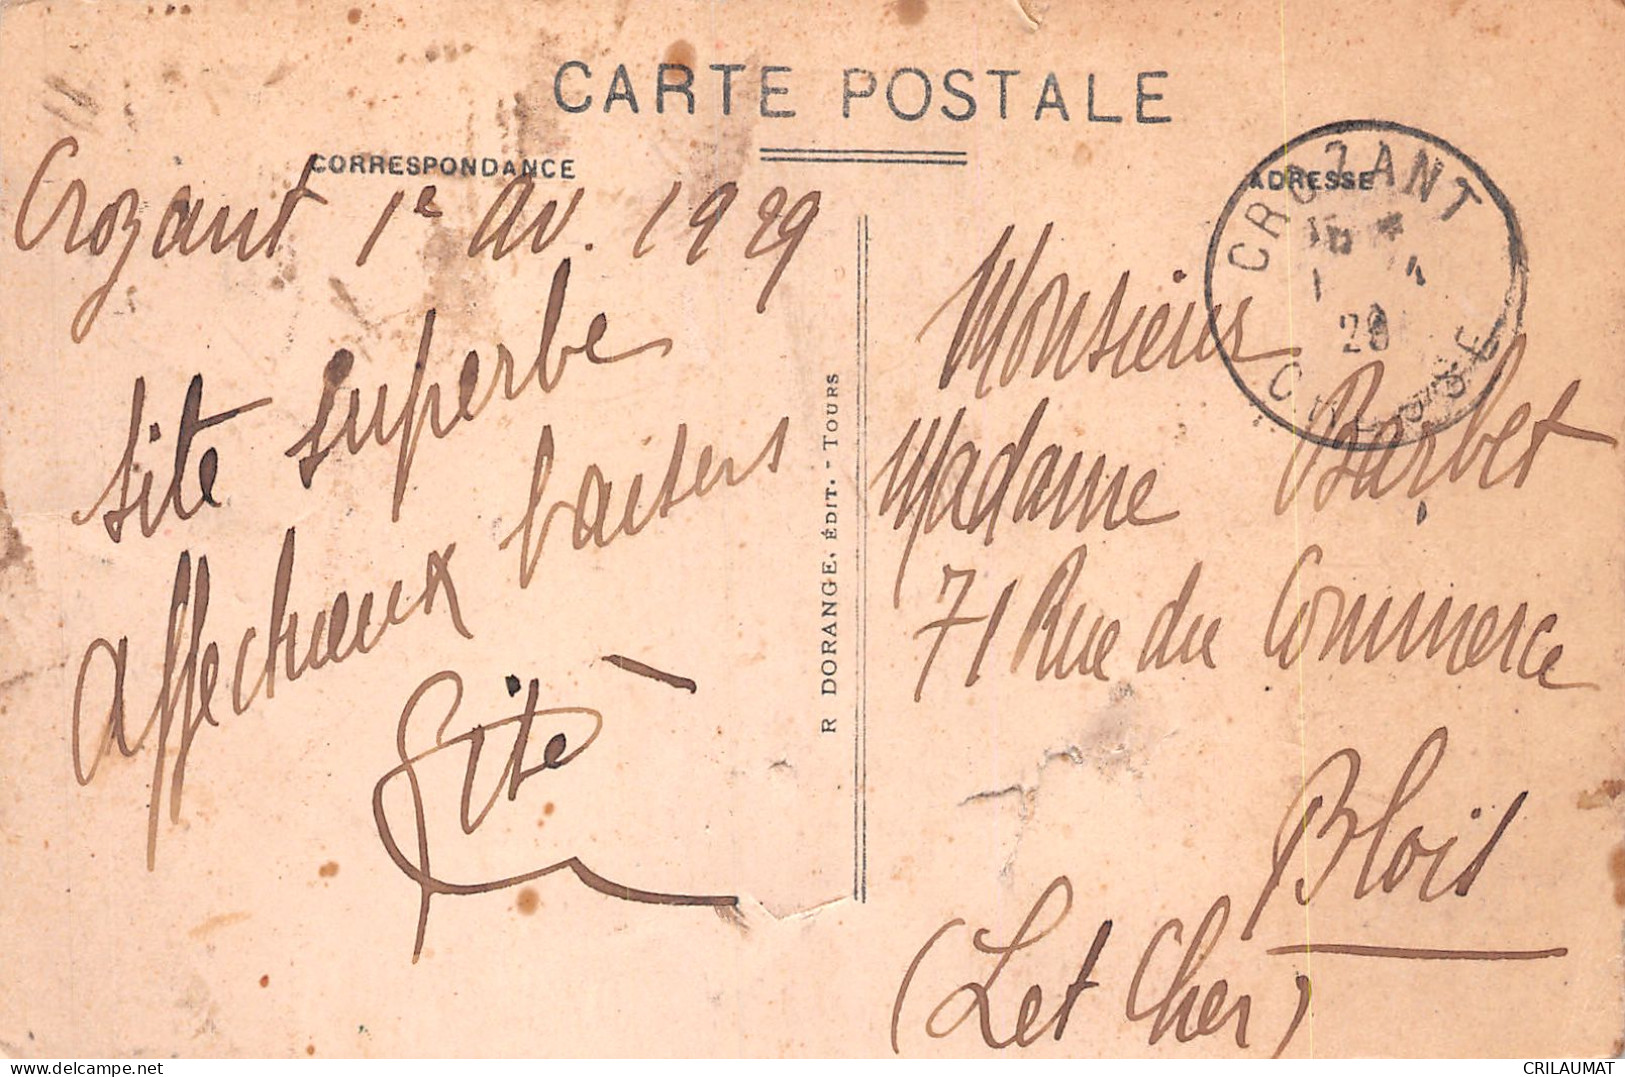 CARTE POSTALE
CORRESPONDANCE
ADRESSE
Crozant 1e av. 1929
site superbe
affectueux baisers
R DORANGE, ÉDIT. - TOURS
CROZANT
1 4
CREUSE
Monsieur
Madame Barbet
71 Rue du Commerce
Blois
(L et Cher)
delcampe.net
CRILAUMAT